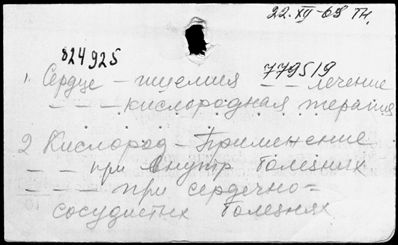 22.XII-65 Тн.
824925
1. Сердце - ишемия 779519 - - лечение
- - - кислородная терапия
2 Кислород - Применение
- - при внутр болезнях
- - - при сердечно=
сосудистых болезнях